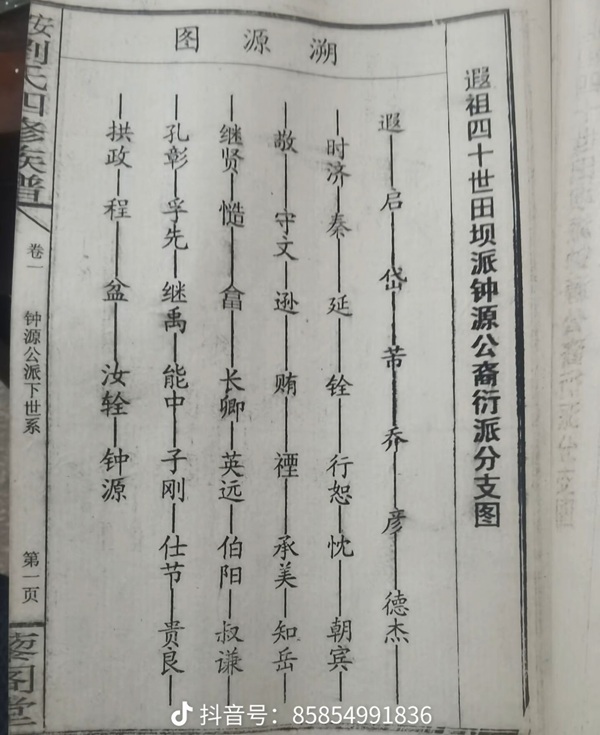 溯源图
遐祖四十世田坝派钟源公裔衍派分支图
遐—启—岱—芾—乔—彦—德杰—
时济—秦—延—铨—行恕—忱—朝宾—
敬—守文—逊—贿—禋—承美—知岳—
继贤—慥—畣—长卿—英远—伯阳—叔谦
孔彰—孚先—继禹—能中—子刚—仕节—贵良—
拱政—程—盆—汝辁—钟源
安刘氏四修族谱
卷一
钟源公派下世系
第一页
阁堂
抖音号：85854991836